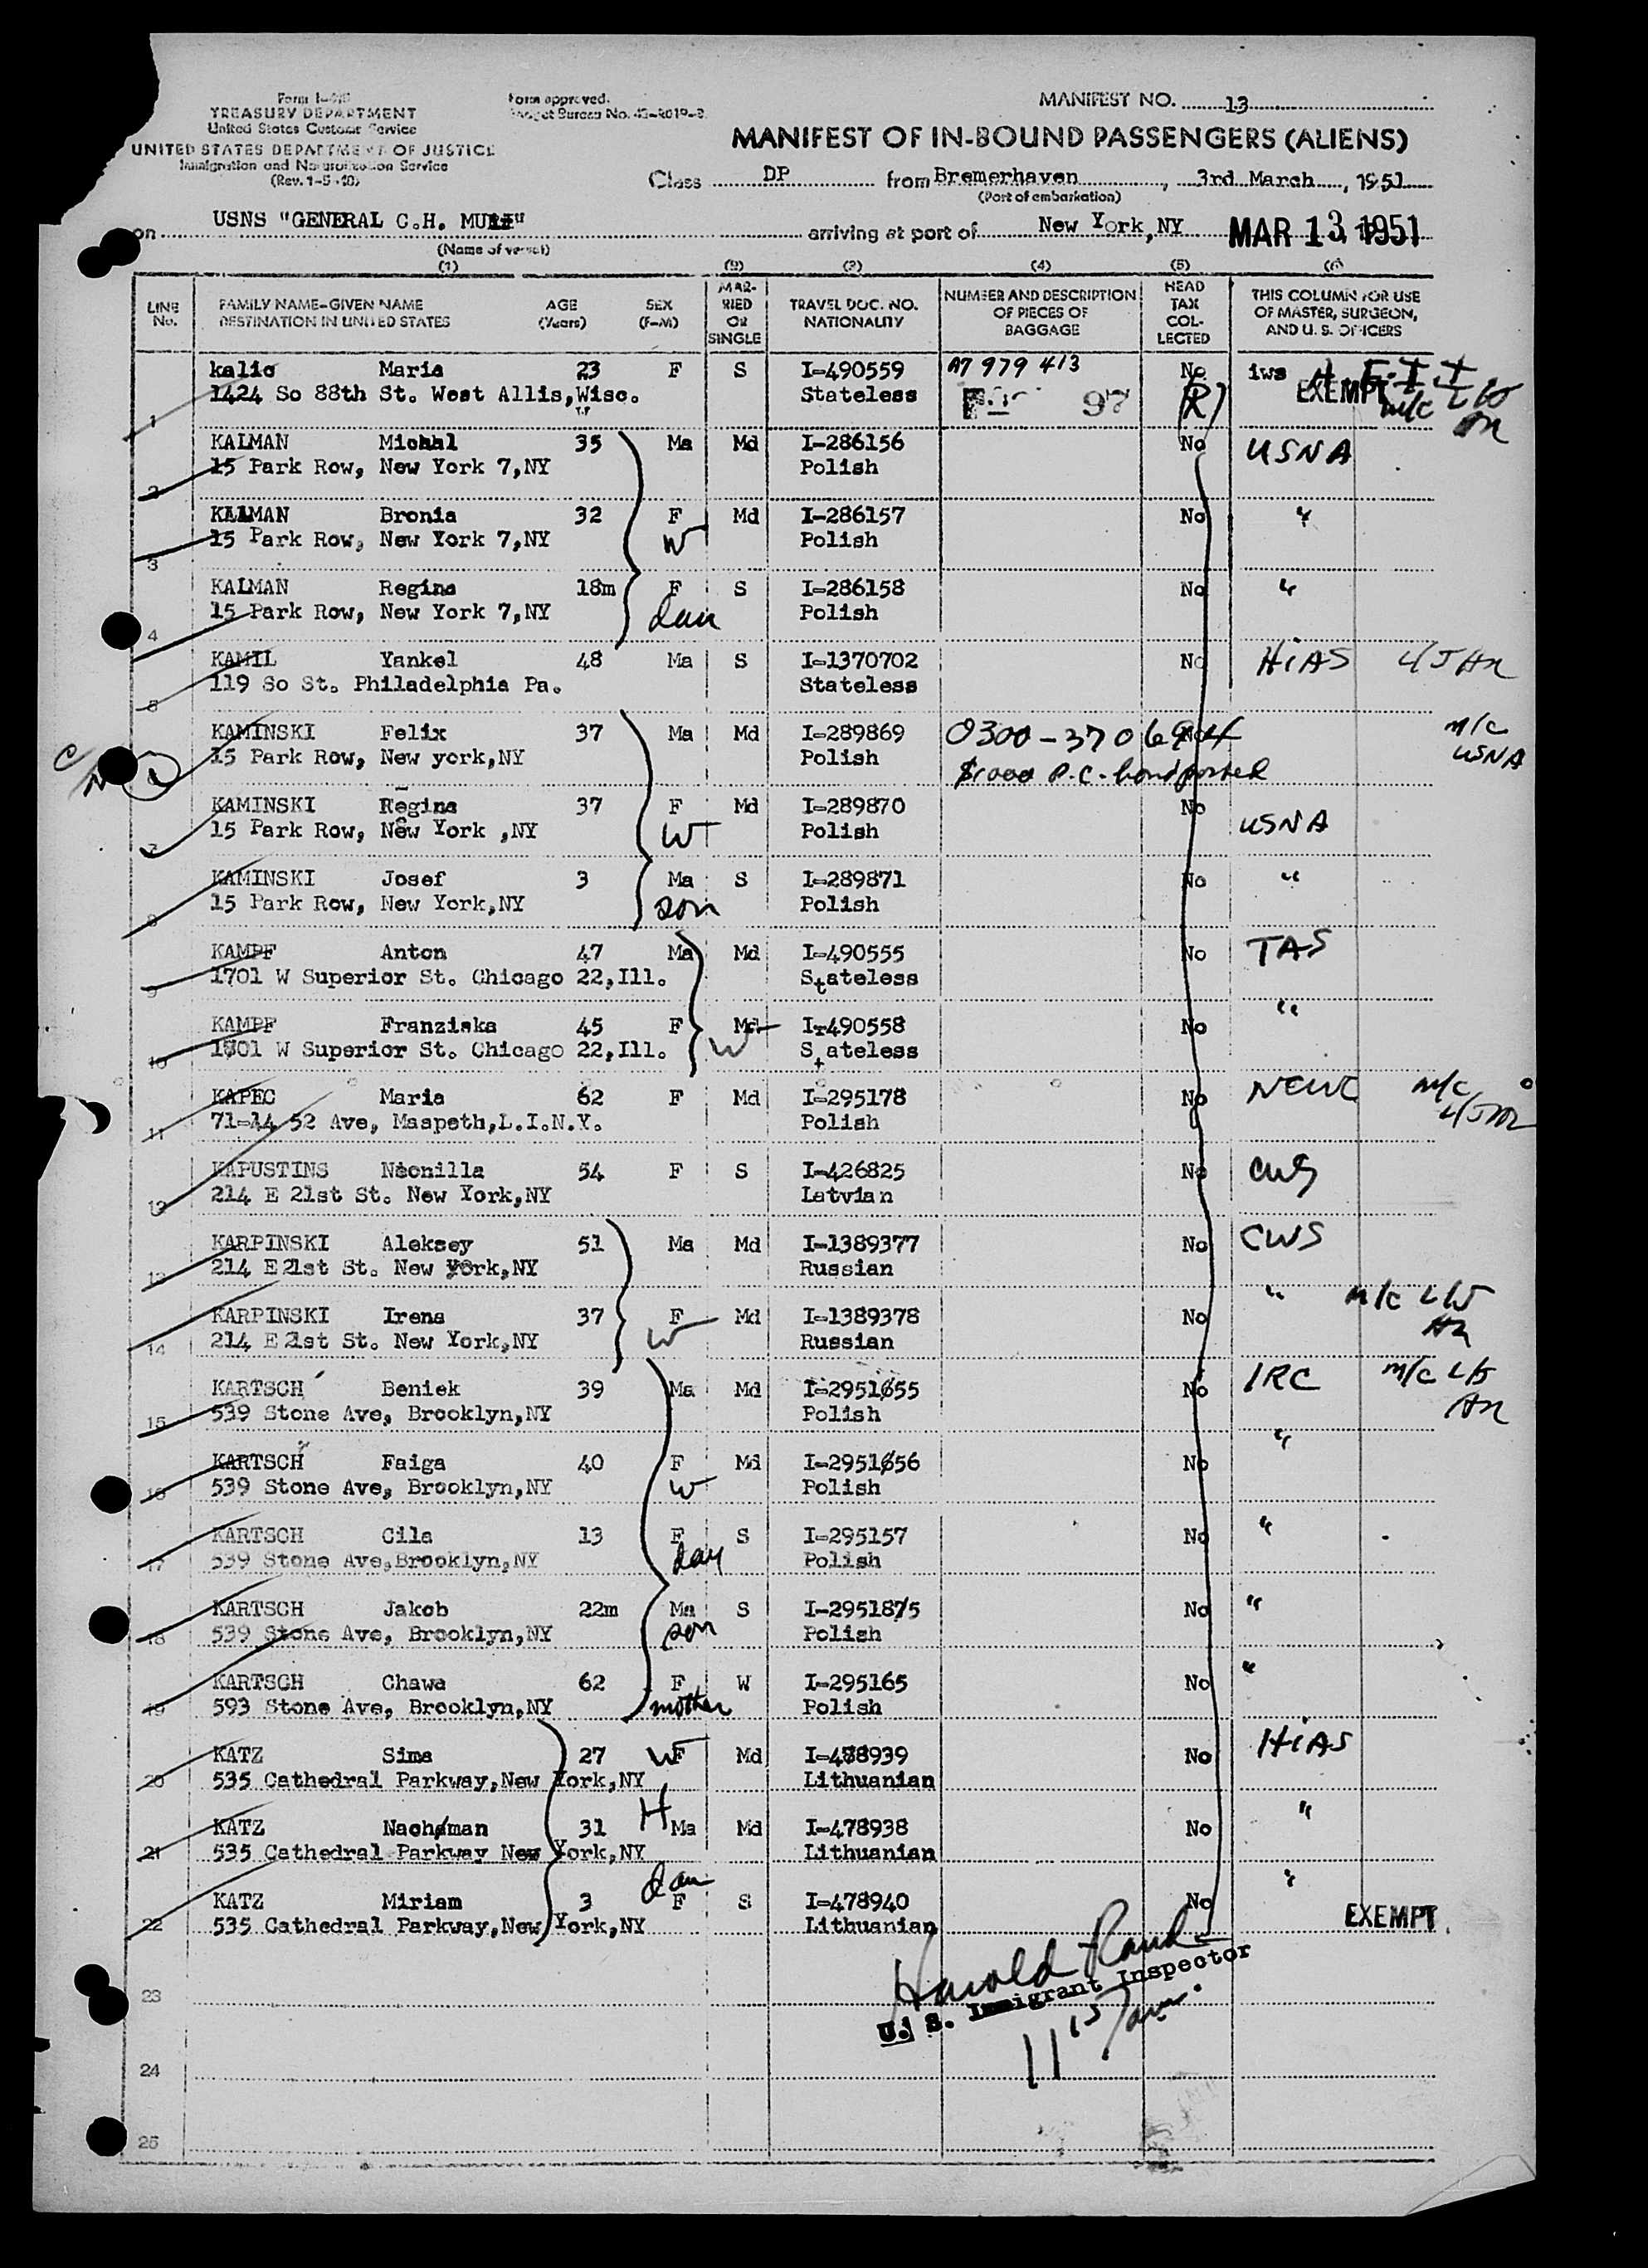 Form approved.
MANIFEST NO. 13
TREASURY DEPARTMENT
United States Customs Service
MANIFEST OF IN-BOUND PASSENGERS (ALIENS)
UNITED STATES DEPARTMENT OF JUSTICE
Immigration and Naturalization Service
Class DP from Bremerhaven, 3rd March, 1951
(Port of embarkation)
on USNS "GENERAL C.H. arriving at port of New York,NY MAR 13 1951
(Name of vessel)
(1) (2) (3) (4) (5) (6)
LINE No. FAMILY NAME-GIVEN NAME DESTINATION IN UNITED STATES AGE (Years) SEX (F-M) MARRIED OR SINGLE TRAVEL DOC. NO. NATIONALITY NUMBER AND DESCRIPTION OF PIECES OF BAGGAGE HEAD TAX COLLECTED THIS COLUMN FOR USE OF MASTER, SURGEON, AND U. S. OFFICERS
kalic Maria 23 F S I-490559 A7 979 413 No iws
1 1424 So 88th St. West Allis,Wisc. Stateless 97 (R) EXEMPT m/c
KALMAN Michal 35 Ma Md I-286156 No USNA
2 15 Park Row, New York 7,NY Polish
KALMAN Bronia 32 F Md I-286157 No "
3 15 Park Row, New York 7,NY W Polish
KALMAN Regina 18m F S I-286158 No "
4 15 Park Row, New York 7,NY dau Polish
KAMIL Yankel 48 Ma S I-1370702 No HIAS
5 119 So St. Philadelphia Pa. Stateless
KAMINSKI Felix 37 Ma Md I-289869 0300-370694 m/c
6 15 Park Row, New york,NY Polish $1000 P.C. bond posted USNA
KAMINSKI Regina 37 F Md I-289870 No
7 15 Park Row, New York ,NY W Polish USNA
KAMINSKI Josef 3 Ma S I-289871 No "
8 15 Park Row, New York,NY son Polish
KAMPF Anton 47 Ma Md I-490555 No TAS
9 1701 W Superior St. Chicago 22,Ill. Stateless
KAMPF Franziska 45 F Md I-490558 No "
10 1701 W Superior St. Chicago 22,Ill. W Stateless
KAPEC Maria 62 F Md I-295178 No NCWC m/c
11 71-14 52 Ave, Maspeth,L.I.N.Y. Polish
KAPUSTINS Neonilla 54 F S I-426825 No CWS
12 214 E 21st St. New York,NY Latvian
KARPINSKI Aleksey 51 Ma Md I-1389377 No CWS
13 214 E 21st St. New York,NY Russian
KARPINSKI Irena 37 F Md I-1389378 No " m/c
14 214 E 21st St. New York,NY W Russian
KARTSCH Beniek 39 Ma Md I-295155 No IRC m/c
15 539 Stone Ave, Brooklyn,NY Polish
KARTSCH Faiga 40 F Md I-295156 No "
16 539 Stone Ave, Brooklyn,NY W Polish
KARTSCH Cila 13 F S I-295157 No "
17 539 Stone Ave,Brooklyn,NY dau Polish
KARTSCH Jakob 22m Ma S I-295185 No "
18 539 Stone Ave, Brooklyn,NY son Polish
KARTSCH Chawa 62 F W I-295165 No "
19 593 Stone Ave, Brooklyn,NY mother Polish
KATZ Sima 27 W F Md I-478939 No HIAS
20 535 Cathedral Parkway,New York,NY Lithuanian
KATZ Nachman 31 H Ma Md I-478938 No "
21 535 Cathedral Parkway New York,NY Lithuanian
KATZ Miriam 3 dau F S I-478940 No "
22 535 Cathedral Parkway,New York,NY Lithuanian EXEMPT
Harold
23
U. S. Immigrant Inspector
24
25